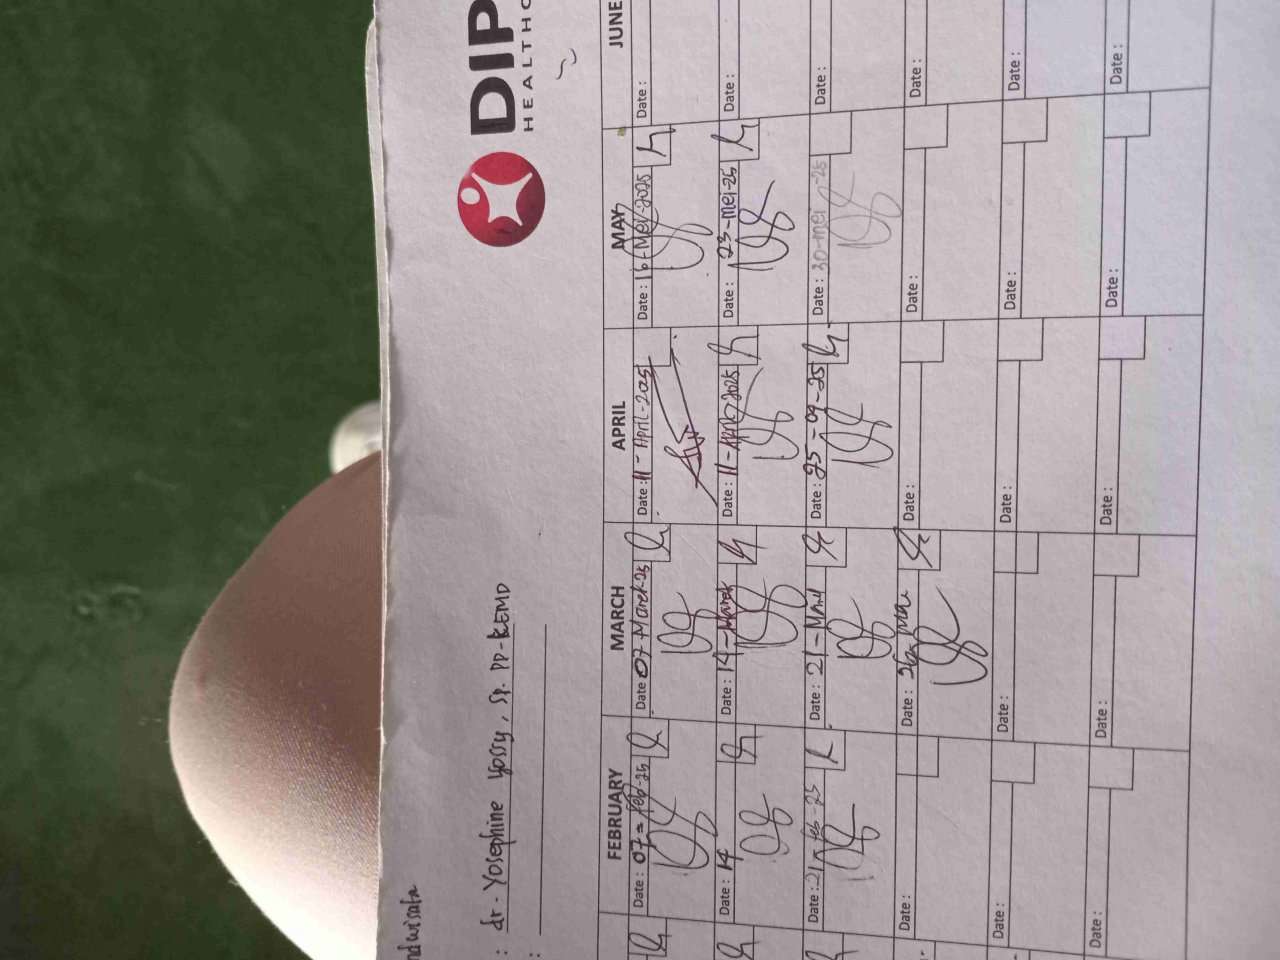 DIP
HEALTHC
ndwisata
: dr. Yosephine Yossy, Sp. PD-KEMD
:
FEBRUARY MARCH APRIL MAY JUNE
Date: 07 = Feb-25 Date: 07-Maret-25 Date: 11-April-2025 Date: 16-Mei-2025 Date:
Date: 14 Date: 14-Maret Date: 11-April 2025 Date: 23-Mei-25 Date:
Date: 21 Feb-25 Date: 21- Date: 25-04-25 Date: 30-mei-25 Date:
Date: Date: Date: Date: Date:
Date: Date: Date: Date: Date:
Date: Date: Date: Date: Date: